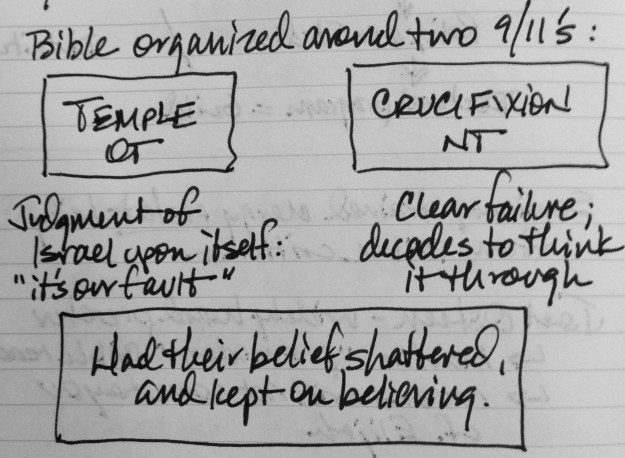 Bible organized around two 9/11's:
TEMPLE
OT
CRUCIFIXION
NT
Judgment of
Israel upon itself:
"it's our fault"
Clear failure;
decades to think
it through
Had their belief shattered,
and kept on believing.